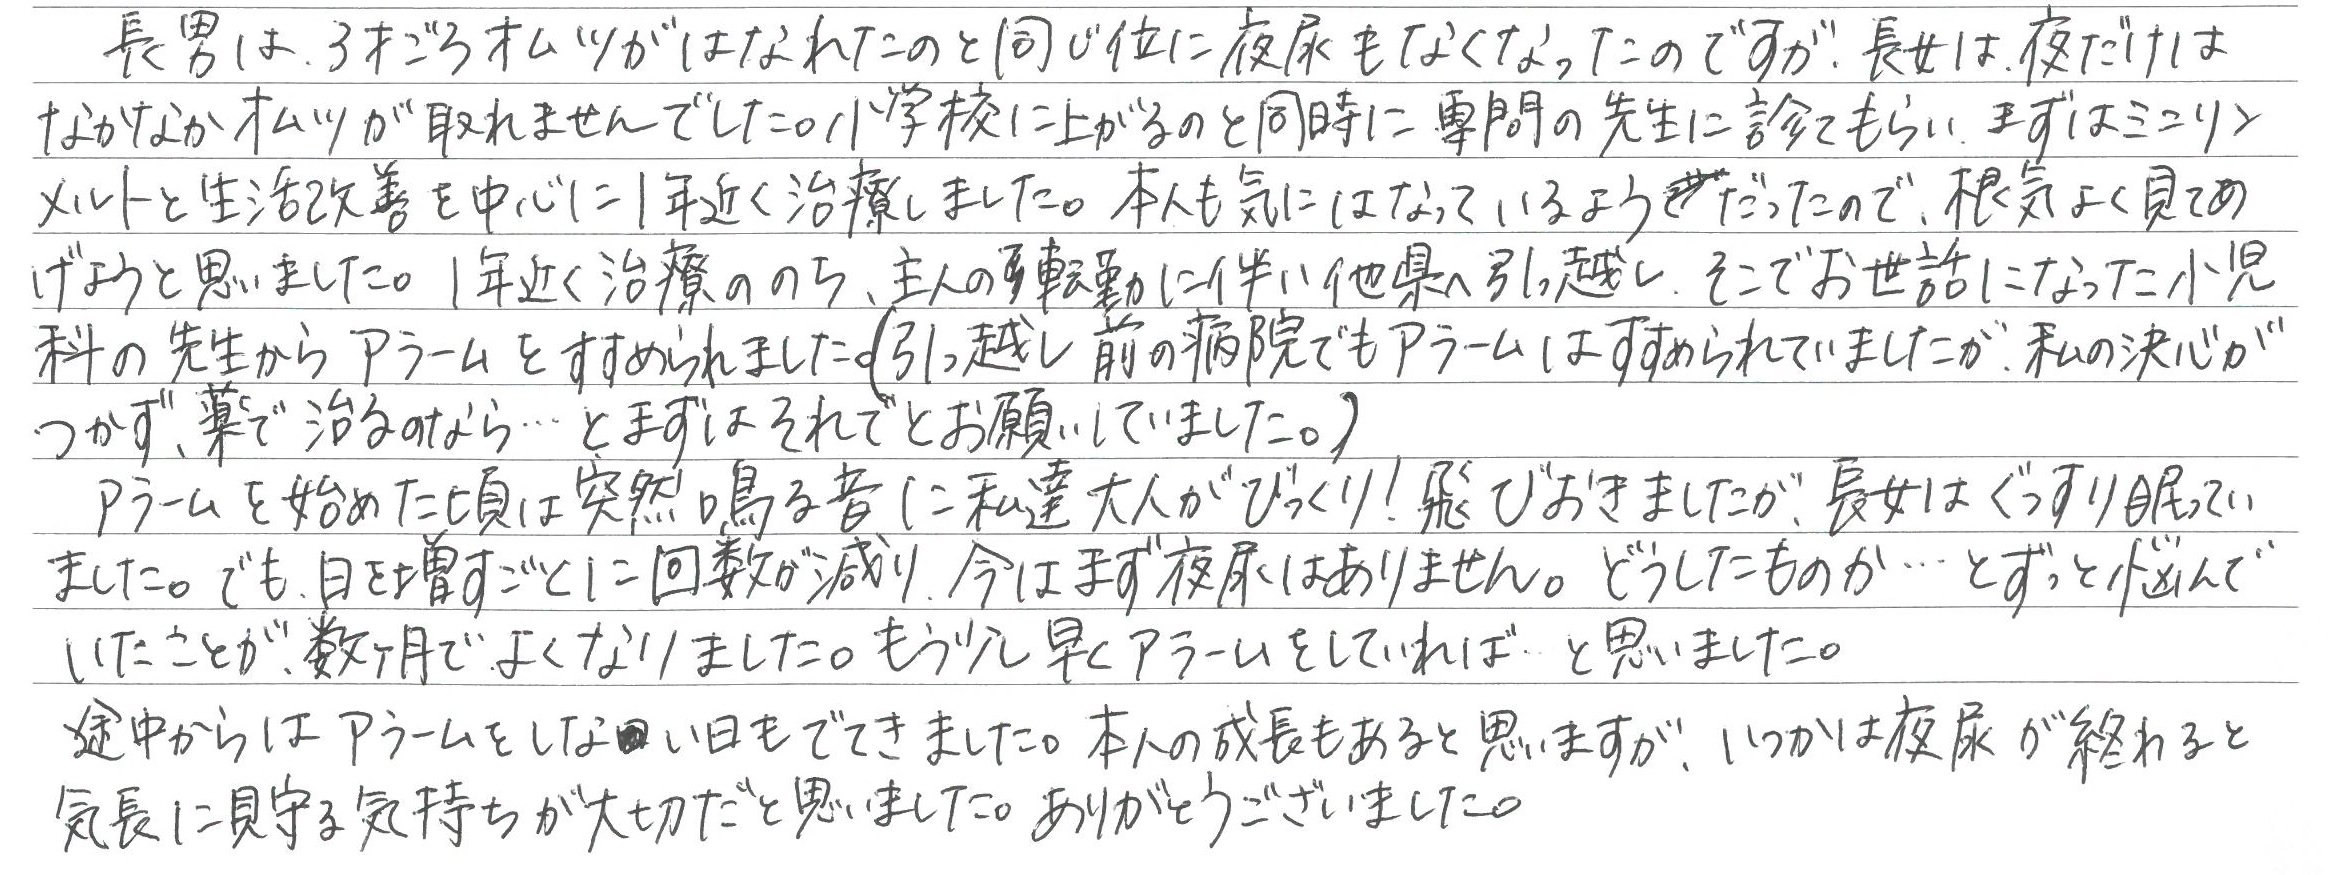 長男は、3才ごろオムツがはなれたのと同じ位に夜尿もなくなったのですが、長女は、夜だけは
なかなかオムツが取れませんでした。小学校に上がるのと同時に専門の先生に診てもらい、まずはミニリン
メルトと生活改善を中心に1年近く治療しました。本人も気にはなっているようだったので、根気よく見てあ
げようと思いました。1年近く治療ののち、主人の転勤に伴い他県へ引っ越し、そこでお世話になった小児
科の先生からアラームをすすめられました。(引っ越し前の病院でもアラームはすすめられていましたが、私の決心が
つかず、薬で治るのなら…とまずはそれでとお願いしていました。)
アラームを始めた頃は突然鳴る音に私達大人がびっくり!飛びおきましたが、長女はぐっすり眠ってい
ました。でも、日を増すごとに回数が減り、今はまず夜尿はありません。どうしたものか…とずっと悩んで
いたことが、数ヶ月でよくなりました。もう少し早くアラームをしていれば…と思いました。
途中からはアラームをしない日もでてきました。本人の成長もあると思いますが、いつかは夜尿が終わると
気長に見守る気持ちが大切だと思いました。ありがとうございました。